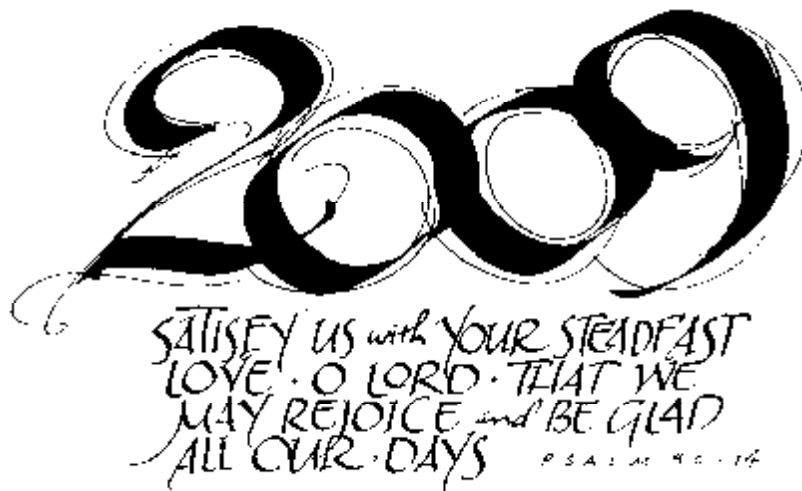 2009
SATISFY US with YOUR STEADFAST
LOVE · O LORD · THAT WE
MAY REJOICE and BE GLAD
ALL OUR · DAYS PSALM 90·14